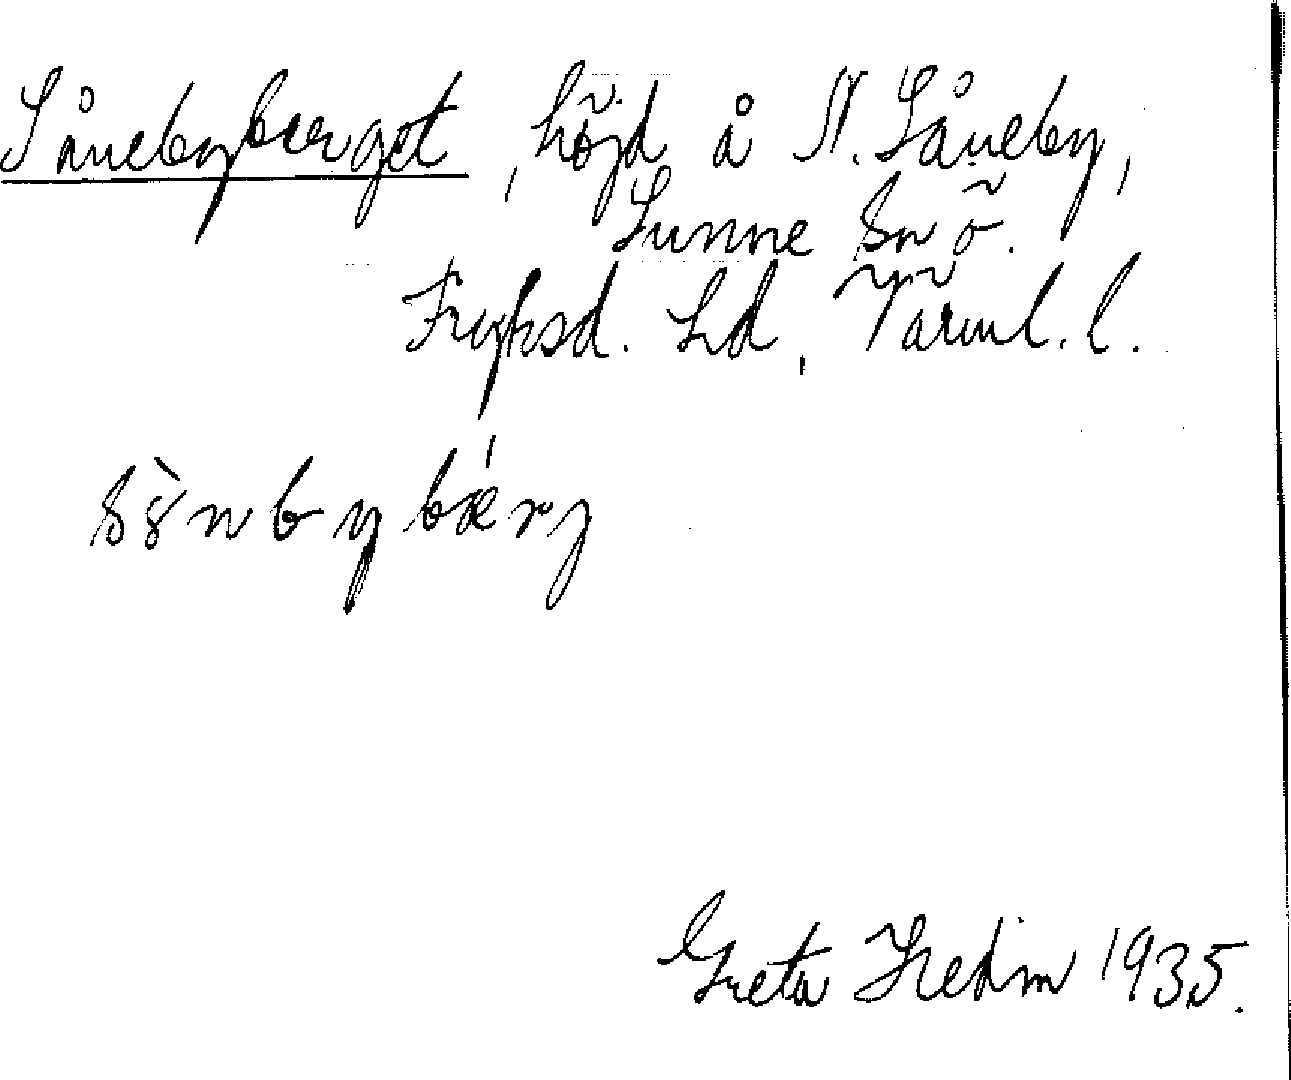 Sånebyberget, höjd å N. Såneby,
Sunne sn ö.
Fryksd. hd, Värml. l.
Greta Hedin 1935.